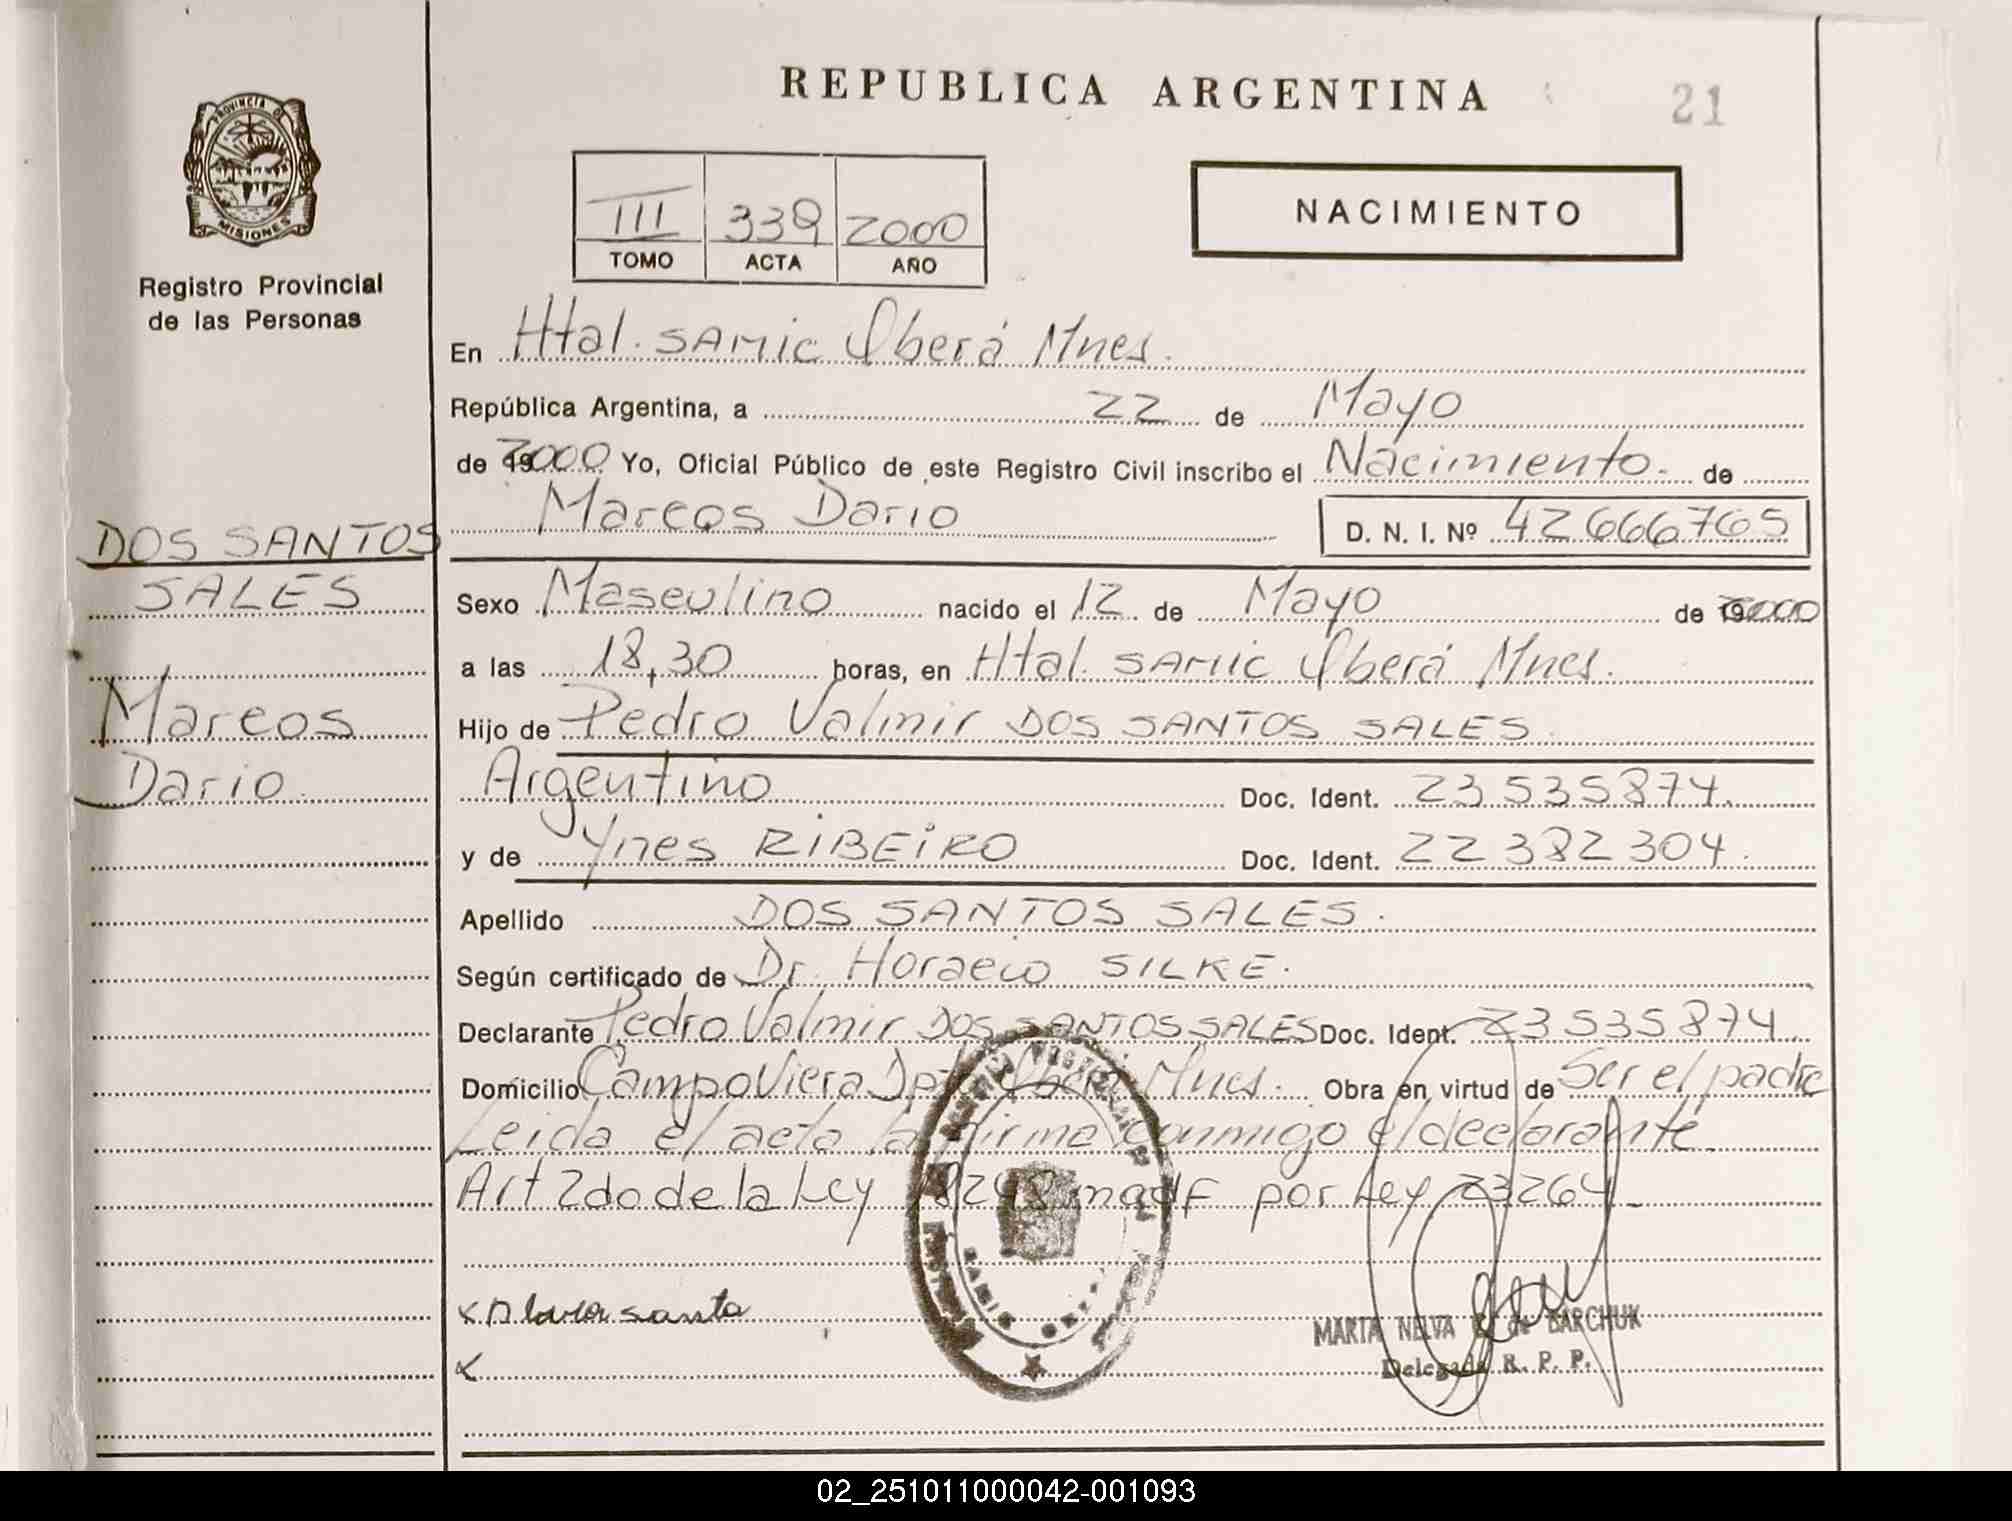 REPUBLICA ARGENTINA
21
PROVINCIA DE
MISIONES
Registro Provincial
de las Personas
III 339 2000
TOMO ACTA AÑO
NACIMIENTO
En Htal. SAMIC Oberá Mnes.
República Argentina, a 22 de Mayo
de 2000 Yo, Oficial Público de este Registro Civil inscribo el Nacimiento. de
Marcos Dario D. N. I. Nº 42666765
DOS SANTOS
SALES
Marcos
Dario
Sexo Masculino nacido el 12 de Mayo de 2000
a las 18,30 horas, en Htal. SAMIC Oberá Mnes.
Hijo de Pedro Valmir DOS SANTOS SALES.
Argentino Doc. Ident. 23535874.
y de Ynes RIBEIRO Doc. Ident. 22382304.
Apellido DOS SANTOS SALES.
Según certificado de Dr. Horacio SILKE.
Declarante Pedro Valmir DOS SANTOS SALES Doc. Ident. 23535874
Domicilio Campo Viera Dpto Oberá Mnes. Obra en virtud de Ser el padre
Leida el acta la firma conmigo el declarante
Art 2do de la Ley 18248 modf por Ley 23264
MARTA NELVA de BARCHUK
Delegada R. P. P.
02_251011000042-001093